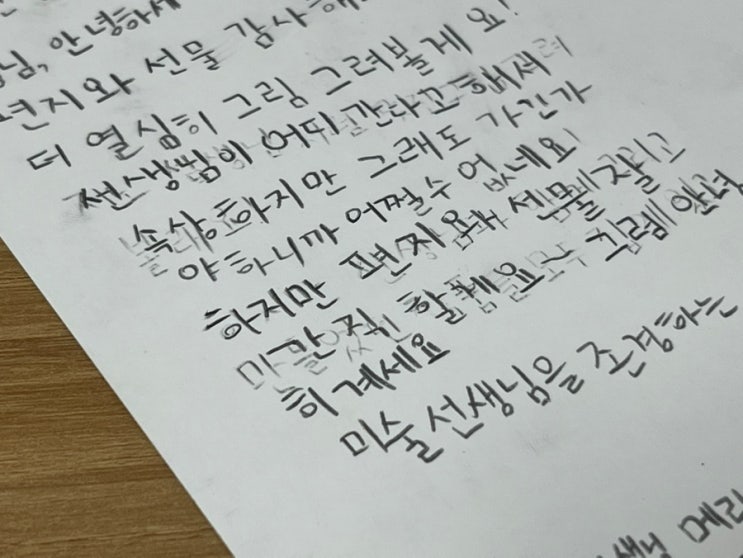 님, 안녕하세
편지와 선물 감사해
더 열심히 그림 그려볼게요!
선생님이 어디 간라고 해서
속상하지만 그래도 가긴가
야하니까 어쩔수 없네요
하지만 편지와 선물 잘
만직 할게요 그럼 안녕
히 계세요
미술선생님을 존경하는
메리